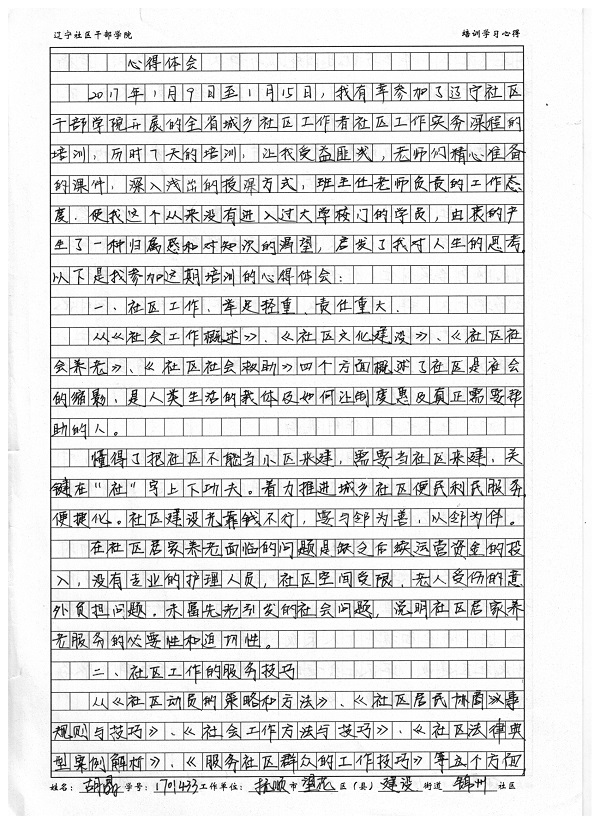 辽宁社区干部学院 培训学习心得
心得体会
2017年1月9日至1月15日,我有幸参加了辽宁社区
干部学院开展的全省城乡社区工作者社区工作实务课程的
培训,历时7天的培训,让我受益匪浅,老师们精心准备
的课件,深入浅出的授课方式,班主任老师负责的工作态
度,使我这个从来没有进入过大学校门的学员,由衷的产
生了一种归属感和对知识的渴望,启发了我对人生的思考。
以下是我参加这期培训的心得体会:
一、社区工作、举足轻重、责任重大。
从《社会工作概述》、《社区文化建设》、《社区社
会养老》、《社区社会救助》四个方面概述了社区是社会
的缩影,是人类生活的载体及如何让制度惠及真正需要帮
助的人。
懂得了把社区不能当小区来建,需要当社区来建,关
键在“社”字上下功夫。着力推进城乡社区便民利民服务
便捷化。社区建设光靠钱不行,要与邻为善,以邻为伴。
在社区居家养老面临的问题是缺乏后续运营资金的投
入,没有专业的护理人员,社区空间受限,老人受伤的意
外负担问题。未富先老引发的社会问题,说明社区居家养
老服务的必要性和迫切性。
二、社区工作的服务技巧
从《社区动员的策略和方法》、《社区居民协商议事
规则与技巧》、《社会工作方法与技巧》、《社区法律典
型案例解析》、《服务社区群众的工作技巧》等五个方面
姓名:胡晶 学号:1701433 工作单位:抚顺市望花区(县)建设街道锦州社区